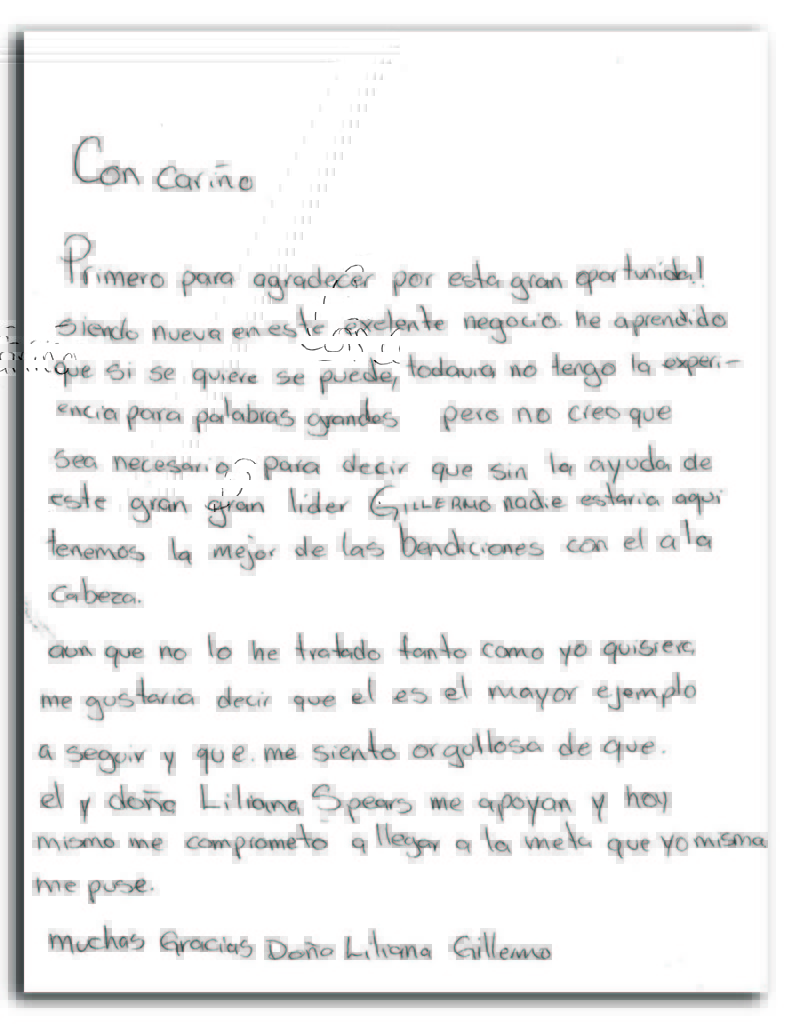 Con cariño
Primero para agradecer por esta gran oportunida!
siendo nueva en este exelente negocio. he aprendido
que si se quiere se puede, todavia no tengo la experi-
encia para palabras grandes pero no creo que
sea necesario para decir que sin la ayuda de
este gran gran lider GILLERMO nadie estaria aqui
tenemos la mejor de las bendiciones con el a la
cabeza.
aun que no lo he tratado tanto como yo quisiera
me gustaria decir que el es el mayor ejemplo
a seguir y que. me siento orgullosa de que.
el y doña Liliana Spears me apoyan y hoy
mismo me comprometo a llegar a la meta que yo misma
me puse.
muchas Gracias Doña Liliana Gillermo